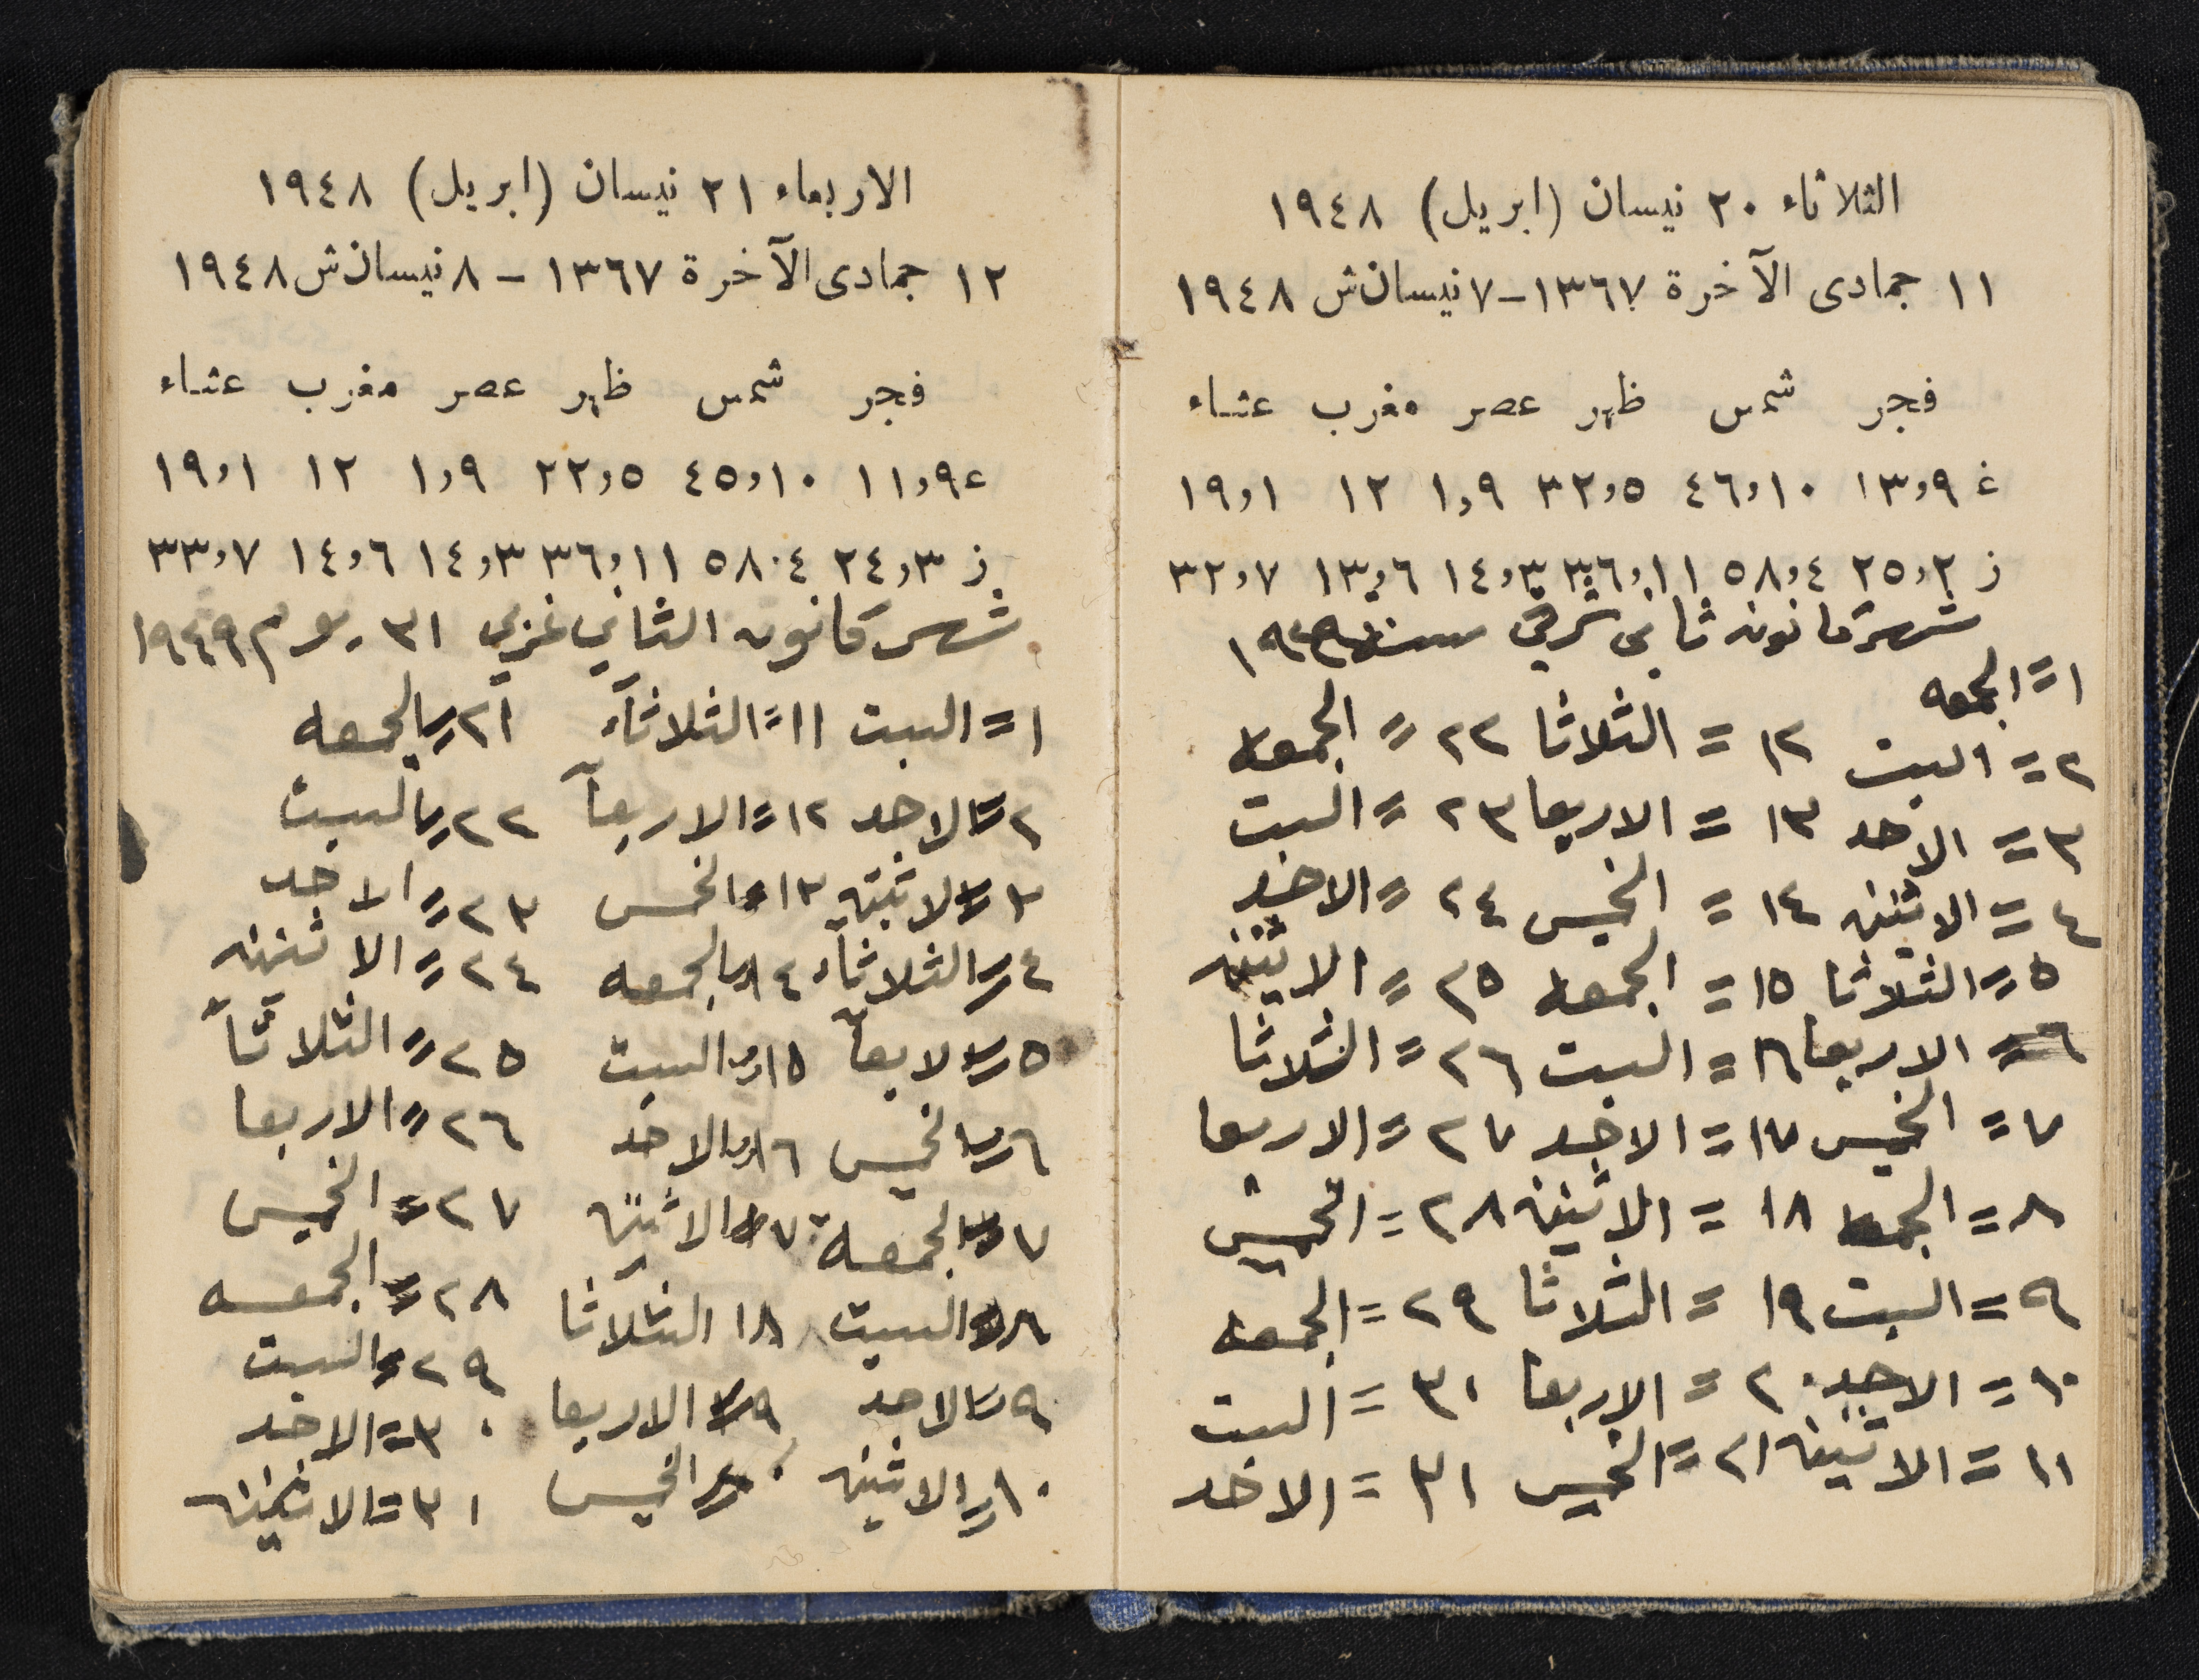 الثلاثاء ٢٠ نيسان (ابريل) ١٩٤٨
١١ جمادى الآخرة ١٣٦٧ - ٧ نيسان ش ١٩٤٨
فجر شمس ظهر عصر مغرب عشاء
غ ١٣,٩ ٤٦,١٠ ٣٢,٥ ١,٩ ١٢ ١٩,١
ز ٢٥,٢ ٥٨,٤ ٣٦,١١ ١٤,٣ ١٣,٦ ٣٢,٧
شهر كانون ثاني شرقي سنة ١٩٤٩
١ = الجمعه
٢ = السبت ١٢ = الثلاثا ٢٢ = الجمعه
٣ = الاحد ١٣ = الاربعا ٢٣ = السبت
٤ = الاثنين ١٤ = الخميس ٢٤ = الاحد
٥ = الثلاثا ١٥ = الجمعه ٢٥ = الاثنين
٦ = الاربعا ١٦ = السبت ٢٦ = الثلاثا
٧ = الخميس ١٧ = الاحد ٢٧ = الاربعا
٨ = الجمعه ١٨ = الاثنين ٢٨ = الخميس
٩ = السبت ١٩ = الثلاثا ٢٩ = الجمعه
١٠ = الاحد ٢٠ = الاربعا ٣٠ = السبت
١١ = الاثنين ٢١ = الخميس ٣١ = الاحد
الاربعاء ٢١ نيسان (ابريل) ١٩٤٨
١٢ جمادى الآخرة ١٣٦٧ - ٨ نيسان ش ١٩٤٨
فجر شمس ظهر عصر مغرب عشاء
ع ١١,٩ ٤٥,١٠ ٢٢,٥ ١,٩ ١٢ ١٩,١
ز ٢٤,٣ ٥٨٠٤ ٣٦,١١ ١٤,٣ ١٤,٦ ٣٣,٧
شهر كانون الثاني غربي ٣١ يوم ١٩٤٩
١ = السبت ١١ = الثلاثآء ٢١ = الجمعه
٢ = الاحد ١٢ = الاربعآ ٢٢ = السبت
٣ = الاثنين ١٣ = الخمس ٢٣ = الاحد
٤ = الثلاثآء ١٤ = الجمعه ٢٤ = الاثنين
٥ = الابعآ ١٥ = السبت ٢٥ = الثلاثآ
٦ = الخميس ١٦ = الاحد ٢٦ = الاربعا
٧ = الجمعة ١٧ = الاثنين ٢٧ = الخميس
٨ = السبت ١٨ الثلاثا ٢٨ = الجمعه
٩ = الاحد ١٩ = الاربعا ٢٩ = السبت
١٠ = الاثنين ٢٠ = الخميس ٣٠ = الاحد
٣١ = الاثنين